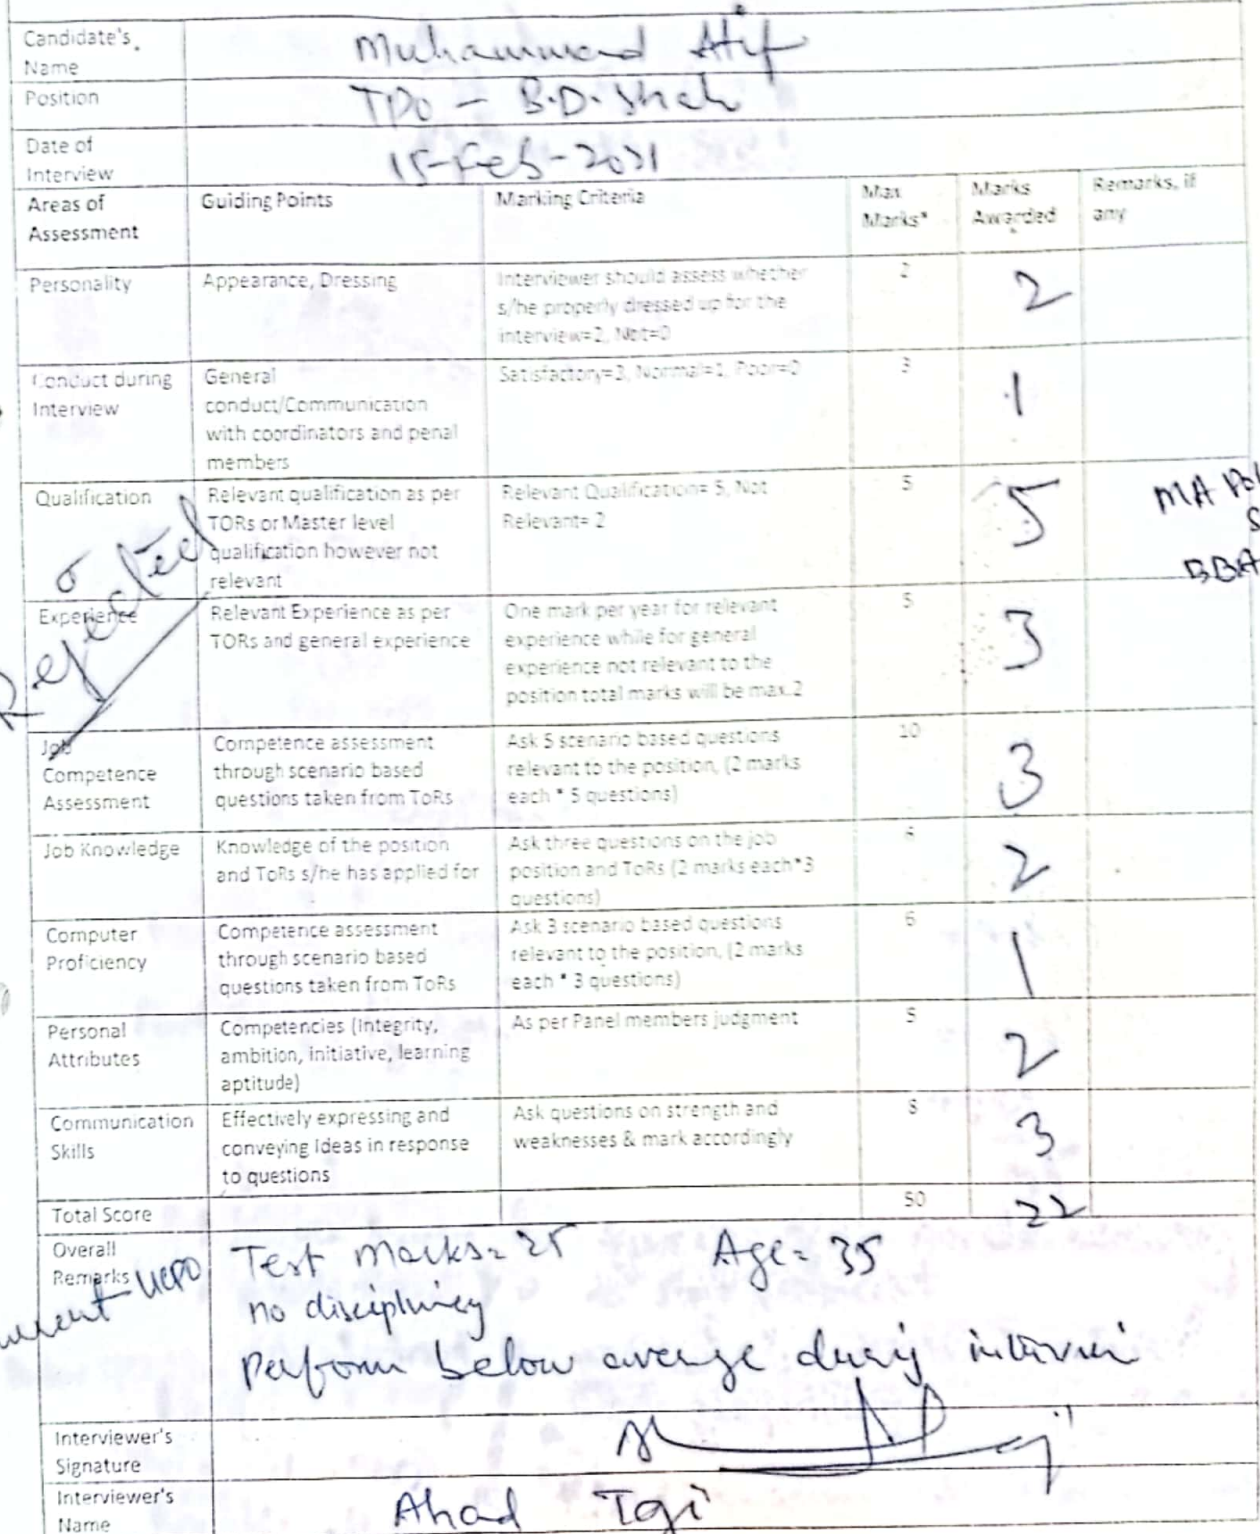 Candidate's
Name
Muhammad Atif
Position
TPO - B.D. Shah
Date of
Interview
15-Feb-2021
Areas of
Assessment
Guiding Points
Marking Criteria
Max
Marks*
Marks
Awarded
Remarks, if
any
Personality
Appearance, Dressing
Interviewer should assess whether
s/he properly dressed up for the
interview=2, Not=0
2
2
Conduct during
Interview
General
conduct/Communication
with coordinators and penal
members
Satisfactory=3, Normal=1, Poor=0
3
1
Qualification
Relevant qualification as per
TORs or Master level
qualification however not
relevant
Relevant Qualification= 5, Not
Relevant= 2
5
5
MA Pol
S
BBA
Rejected
Experience
Relevant Experience as per
TORs and general experience
One mark per year for relevant
experience while for general
experience not relevant to the
position total marks will be max 2
5
3
Job
Competence
Assessment
Competence assessment
through scenario based
questions taken from ToRs
Ask 5 scenario based questions
relevant to the position, (2 marks
each * 5 questions)
10
3
Job Knowledge
Knowledge of the position
and ToRs s/he has applied for
Ask three questions on the job
position and ToRs (2 marks each*3
questions)
6
2
Computer
Proficiency
Competence assessment
through scenario based
questions taken from ToRs
Ask 3 scenario based questions
relevant to the position, (2 marks
each * 3 questions)
6
1
Personal
Attributes
Competencies (Integrity,
ambition, initiative, learning
aptitude)
As per Panel members judgment
5
2
Communication
Skills
Effectively expressing and
conveying Ideas in response
to questions
Ask questions on strength and
weaknesses & mark accordingly
8
3
Total Score
50
22
Overall
Remarks
UCPO
Test Marks= 25 Age= 35
no disciplincy
Perform below average during interview
Interviewer's
Signature
Interviewer's
Name
Ahad